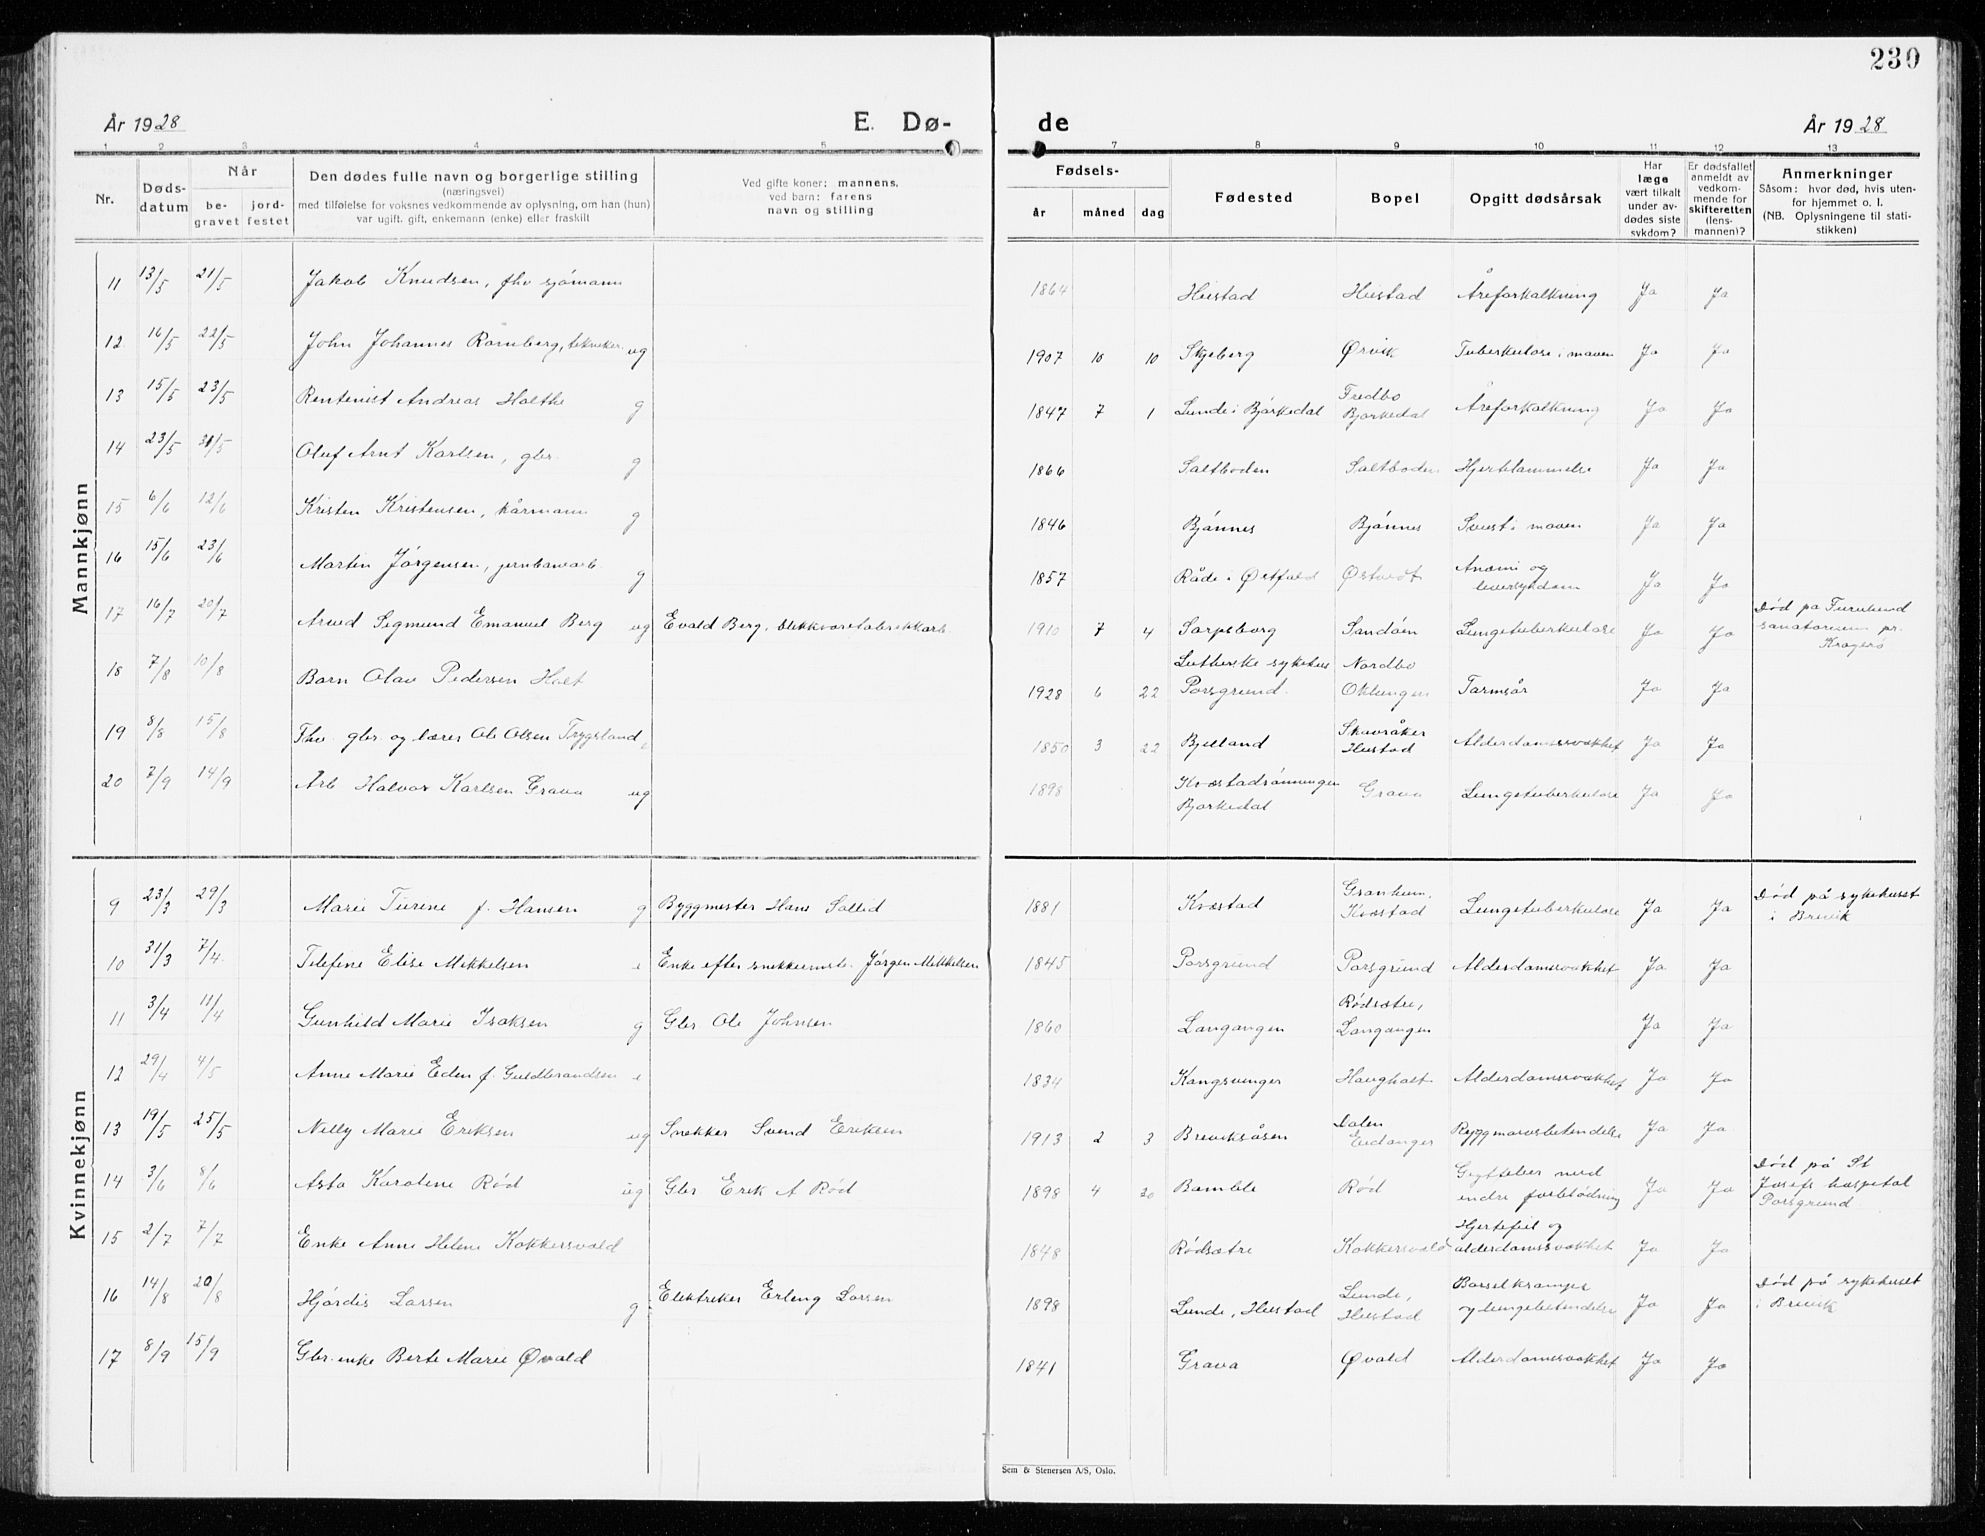 230
År 1928 E. Dø- de År 1928
1 2 3 4 5 7 8 9 10 11 12 13
Nr. Døds-datum Når be-gravet jord-festet Den dødes fulle navn og borgerlige stilling (næringsvei) med tilføielse for voksnes vedkommende av oplysning, om han (hun) var ugift, gift, enkemann (enke) eller fraskilt Ved gifte koner: mannens, ved barn: farens navn og stilling Fødsels- år måned dag Fødested Bopel Opgitt dødsårsak Har læge vært tilkalt under av-dødes siste sykdom? Er dødsfallet anmeldt av vedkom-mende for skifteretten (lens-mannen)? Anmerkninger Såsom: hvor død, hvis uten-for hjemmet o. l. (NB. Oplysningene til stati-stikken)
Mannkjønn
11 13/5 21/5 Jakob Knudsen, fhv sjømann 1864 Heistad Heistad Åreforkalkning Ja Ja
12 16/5 22/5 John Johannes Ramberg, ug 1907 10 10 Skjeberg Ørvik Tuberkulose i maven Ja Ja
13 15/5 23/5 Rentenist Andreas Holthe g 1847 7 1 Lunde i Bjørkedal Fredbo Bjørkedal Åreforkalkning Ja Ja
14 23/5 31/5 Oluf Arnt Karlsen, gbr. g 1866 Saltboden Saltboden Hjertelammelse Ja Ja
15 6/6 12/6 Kristen Kristensen, kårmann g 1846 Bjønnes Bjønnes i maven Ja Ja
16 15/6 23/6 Martin Jørgensen, jernbanearb. g 1857 Råde i Østfold Østvedt Anæmi og leversykdom Ja Ja
17 16/7 20/7 Arvid Sigmund Emanuel Berg ug Evald Berg, blikkvarefabrikkarb. 1910 7 4 Sarpsborg Sandøen Lungetuberkulose Ja Ja Død på Furulund sanatorium pr. Kragerø
18 7/8 10/8 Barn Olav Pedersen Holt 1928 6 22 Lutherske sykehus Porsgrund. Nordbo Oklungen Tarmsår Ja Ja
19 8/8 15/8 Fhv. gbr. og lærer Ole Olsen Trygsland e 1850 3 22 Bjelland Skavråker Heistad Alderdomssvakhet Ja Ja
20 7/9 14/9 Arb Halvor Karlsen Grava ug 1898 Kvæstadrønningen Bjørkedal Grava Lungetuberkulose Ja Ja
Kvinnekjønn
9 23/3 29/3 Marie Turene f. Hansen g Byggmester Hans Sollid 1881 Kvæstad Granheim, Kvæstad Lungetuberkulose Ja Ja Død på sykehuset i Brevik
10 31/3 7/4 Telefine Elise Mikkelsen e Enke efter snekkermstr. Jørgen Mikkelsen 1845 Porsgrund Porsgrund Alderdomssvakhet Ja Ja
11 3/4 11/4 Gunhild Marie Isaksen g Gbr Ole Johnsen 1860 Langangen Rødsætre, Langangen Ja Ja
12 29/4 4/5 Anne Marie Eden f. Guldbrandsen e 1834 Kongsvinger Haugholt Alderdomssvakhet Ja Ja
13 19/5 25/5 Nelly Marie Eriksen ug Snekker Svend Eriksen 1913 2 3 Breviksåsen Dalen Eidanger Ryggmarvsbetendelse Ja Ja
14 3/6 8/6 Asta Karoline Rød ug Gbr Erik A Rød 1898 4 20 Bamble Rød med indre forblødning Ja Ja Død på St Josefs hospital Porsgrund
15 2/7 7/7 Enke Anne Helene Kokkersvold 1848 Rødsætre Kokkersvold Hjertefeil og alderdomssvakhet Ja Ja
16 14/8 20/8 Hjørdis Larsen g. Elektriker Erling Larsen 1898 Lunde, Heistad Lunde, Heistad Barselkrampe og lungebetendelse Ja Ja Død på sykehuset i Brevik
17 8/9 15/9 Gbr. enke Berte Marie Øvald 1841 Grava Øvald Alderdomssvakhet Ja Ja
Sem & Stenersen A/S, Oslo.